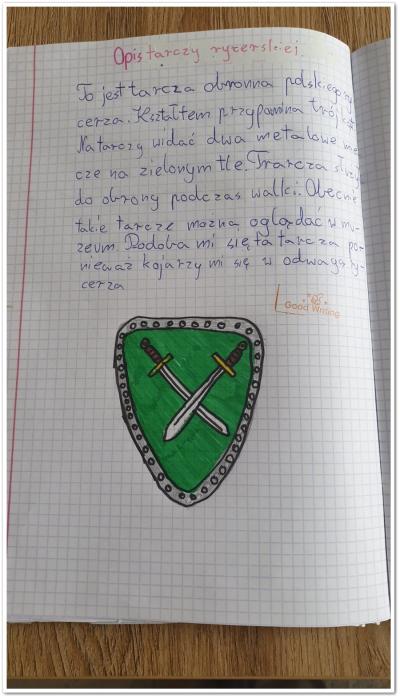 Opis tarczy rycerskiej
To jest tarcza obronna polskiego ry-
cerza. Kształtem przypomina trójkąt.
Na tarczy widać dwa metalowe mie-
cze na zielonym tle. Trarcza służy
do obrony podczas walki. Obecnie
takie tarcze można oglądać w mu-
zeum. Podoba mi się ta tarcza po-
nieważ kojarzy mi się w odwagą ry-
cerza
Good Writing